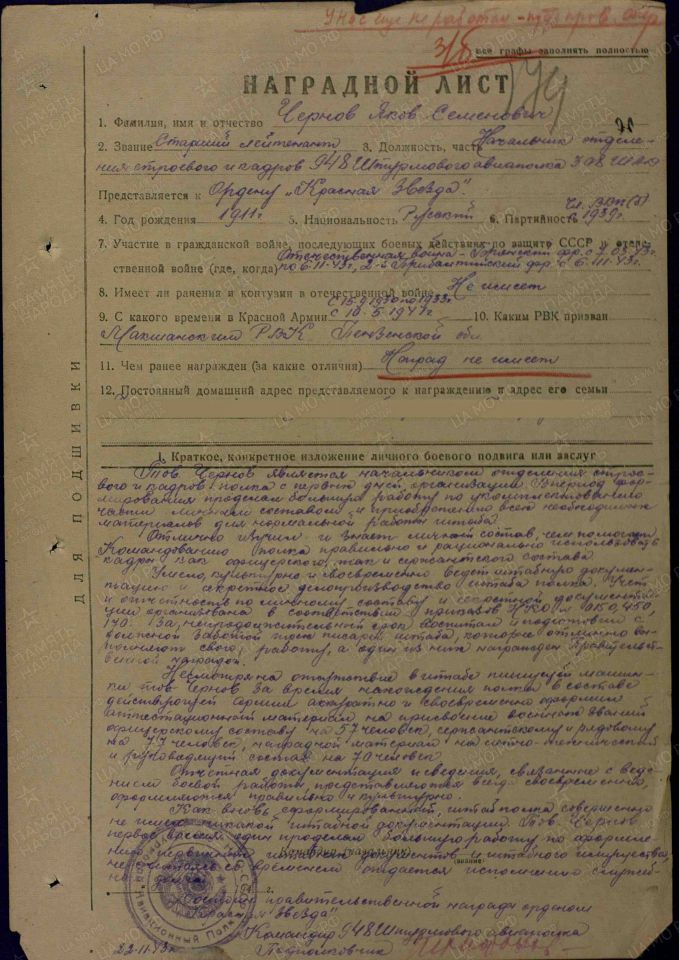 У нас еще не работал
все графы заполнять полностью
НАГРАДНОЙ ЛИСТ
1. Фамилия, имя и отчество Чернов Яков Семенович
2. Звание Старший лейтенант 3. Должность, часть Начальник отделе-
ния строевого и кадров 948 Штурмового авиаполка 308 ШАД
Представляется к Ордену „Красная Звезда"
4. Год рождения 1911г 5. Национальность Русский 6. Партийность Чл. ВКП(б)
с 1939г.
7. Участие в гражданской войне, последующих боевых действиях по защите СССР и отече-
ственной войне (где, когда) Отечественная война - Брянский фр. с 7.03.43г.
по 6.11.43г., 2-й Прибалтийский фр. с 6.11.43г.
8. Имеет ли ранения и контузии в отечественной войне Не имеет
9. С какого времени в Красной Армии с 15.9.1930 по 1933г
с 10.5.1941г 10. Каким РВК призван
Мокшанским РВК Пензенской обл.
11. Чем ранее награжден (за какие отличия) Наград не имеет
12. Постоянный домашний адрес представляемого к награждению и адрес его семьи
ДЛЯ ПОДШИВКИ
1. Краткое, конкретное изложение личного боевого подвига или заслуг
Тов. Чернов является начальником отделения строе-
вого и кадров полка с первых дней организации. В период фор-
мирования проделал большую работу по укомплектованию
части личным составом и приобретению всех необходимых
материалов для нормальной работы штаба.
Отлично изучил и знает личный состав, чем помогает
Командованию полка правильно и рационально использовать
кадры как офицерского, так и сержантского состава.
Умело, культурно и своевременно ведет штабную докумен-
тацию и секретное делопроизводство штаба полка. Учет
и отчетность по личному составу и секретной документа-
ции организована в соответствии приказов НКО № 0150, 450,
190. За непродолжительный срок воспитал и подготовил с
должной заботой трех писарей штаба, которые отлично вы-
полняют свою работу, а один из них награжден Правительст-
венной наградой.
Несмотря на отсутствие в штабе пишущей машин-
ки тов Чернов за время нахождения полка в составе
действующей армии аккуратно и своевременно оформил
аттестационный материал на присвоение военного званий
офицерскому составу на 57 человек, сержантскому и рядовому
на 77 человек, наградной материал на летно-технический
и руководящий состав на 70 человек.
Отчетная документация и сведения, связанные с веде-
нием боевой работы, представляются всегда своевременно,
оформляются правильно и культурно.
Как вновь сформированный, штаб полка совершенно
не имел никакой штабной документации. Тов. Чернов
первое время один проделал большую работу по оформле-
нию первичных штабных документов и штабного имущества,
не считаясь со временем отдается исполнению служеб-
ного долга.
Командир (начальник)
Достоин правительственной награды орденом
„Красная Звезда"
Командир 948 Штурмового авиаполка
22.11.43г. Подполковник